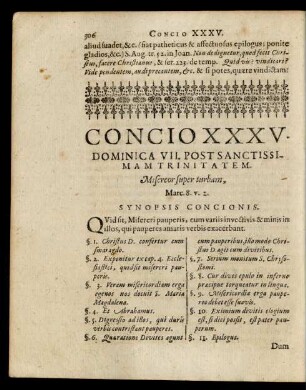 306 CONCIO XXXV.
aliud suadet, &c. (sint patheticus & affectuosus epilogus: ponite
gladios, &c.) S. Aug. tr. 52. in Joan. Non dedignetur, quod fecit Chri-
stus, facere Christianus, & ser. 124. de temp. Quid vis: vindicari?
Vide pendentem, audi precantem, &c. & si potes, quære vindictam:
CONCIO XXXV.
DOMINICA VII. POST SANCTISSI-
MAM TRINITATEM.
Misereor super turbam.
Marc. 8. v. 2.
SYNOPSIS CONCIONIS.
Quid sit, Misereri pauperis, cum variis invectivis & minis in
illos, qui pauperes amaris verbis exacerbant.
§. 1. Christus D. confertur cum
§. 2. Expenitur ex cap. 4. Eccle-
siastici, quid sit misereri pau-
peris.
§. 3. Veram misericordiam erga
egenos nos docuit S. Maria
Magdalena.
§. 4. Et Abrahamus.
§. 5. Digressio ad illos, qui duris
verbis contristant pauperes.
§. 6. Quaratione Divites agunt
cum pauperibus, hoc modo Chri-
stus D. aget cum divitibus.
§. 7. Strenum monitum S. Chryso-
stomi.
§. 8. Cur dives epulo in inferno
præcipue torqueatur in lingua.
§. 9. Misericordia erga paupe-
res debet esse suavis.
§. 10. Eximium divitis elogium
est, si dici possit, est pater pau-
perum.
§. 11. Epilogus.
Dum